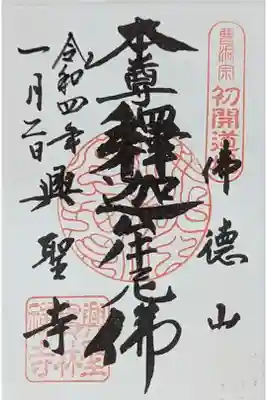 曹洞宗
初開道
佛徳山
本尊釋迦牟尼佛
令和四年
一月二日
興聖寺